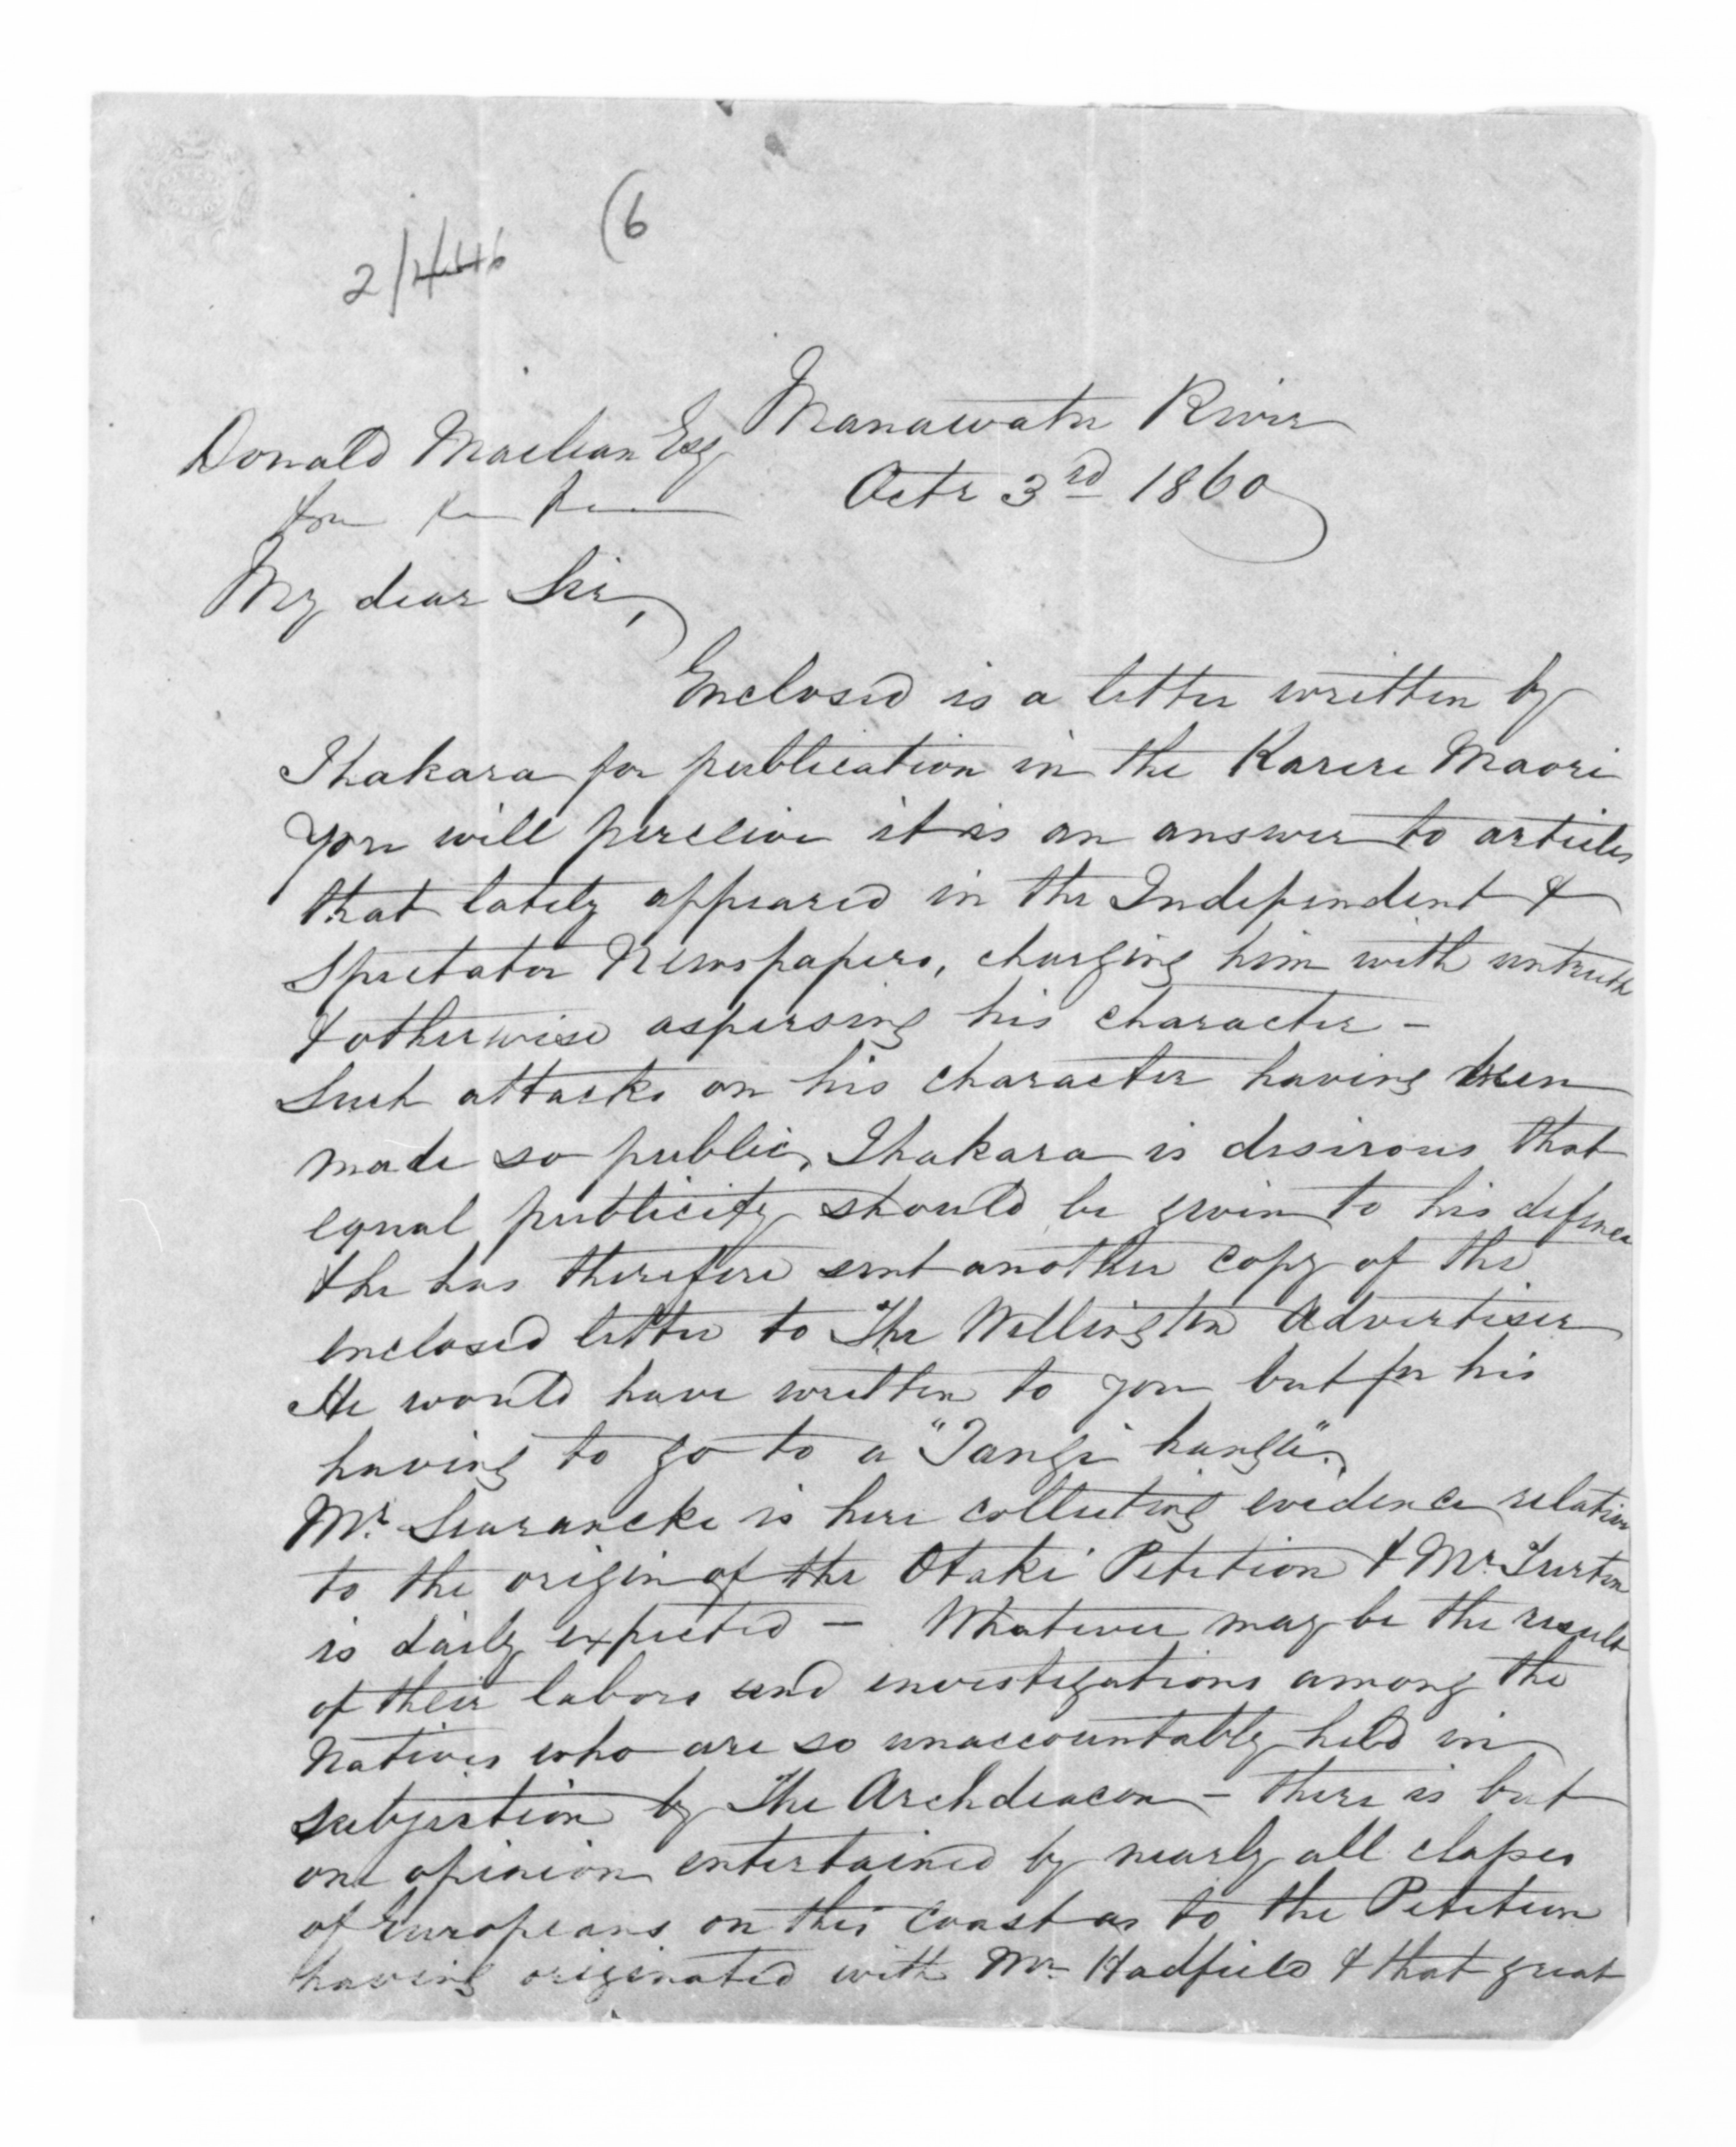 (6
2/446
Manawatu River
Donald Maclean Esq
Octr 3rd 1860
My dear Sir,
Enclosed is a letter written by
Ihakara for publication in the Karere Maori
You will perceive it is an answer to articles
that lately appeared in the Independent &
Spectator Newspapers, charging him with untruth
& otherwise aspersing his character -
Such attacks on his character having been
made so public, Ihakara is desirous that
equal publicity should be given to his defence
& he has therefore sent another copy of the
enclosed letter to The Wellington Advertiser
He would have written to you but for his
having to go to a "Tangi hanga".
Mr. Searancke is here collecting evidence relative
to the origin of the Otaki Petition & Mr. Turton
is daily expected - Whatever may be the result
of their labors and investigations among the
Natives who are so unaccountably held in
subjection by The Archdeacon - there is but
one opinion entertained by nearly all classes
of Europeans on this Coast as to the Petition
having originated with Mr Hadfield & that great